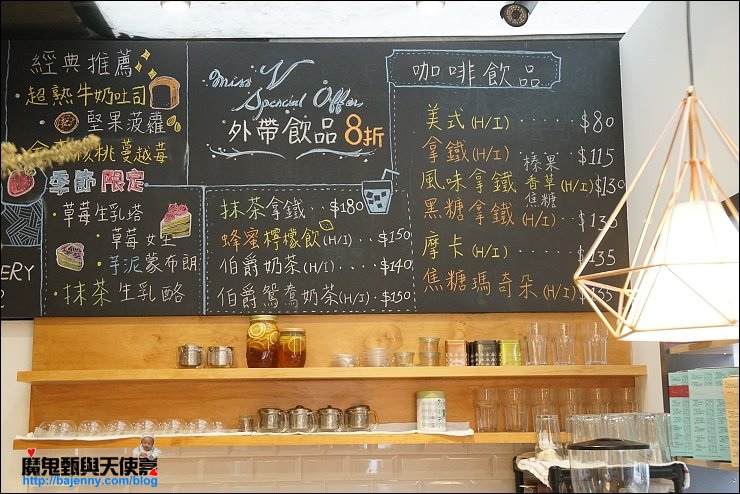 經典推薦
超熟牛奶吐司
堅果菠蘿
核桃蔓越莓
季節限定
草莓生乳塔
草莓女王
芋泥蒙布朗
抹茶生乳酪
ERY
Miss V
Special Offer
外帶飲品8折
抹茶拿鐵 ... $180
蜂蜜檸檬飲(H/I) .. $150
伯爵奶茶(H/I) ... $140
伯爵鴛鴦奶茶(H/I) .. $150
咖啡飲品
美式(H/I) ...... $80
拿鐵(H/I) ..... $115
風味拿鐵 榛果 香草 焦糖 (H/I) $130
黑糖拿鐵(H/I) ... $135
摩卡(H/I) .... $135
焦糖瑪奇朵(H/I)
魔鬼甄與天使嘉
http://bajenny.com/blog